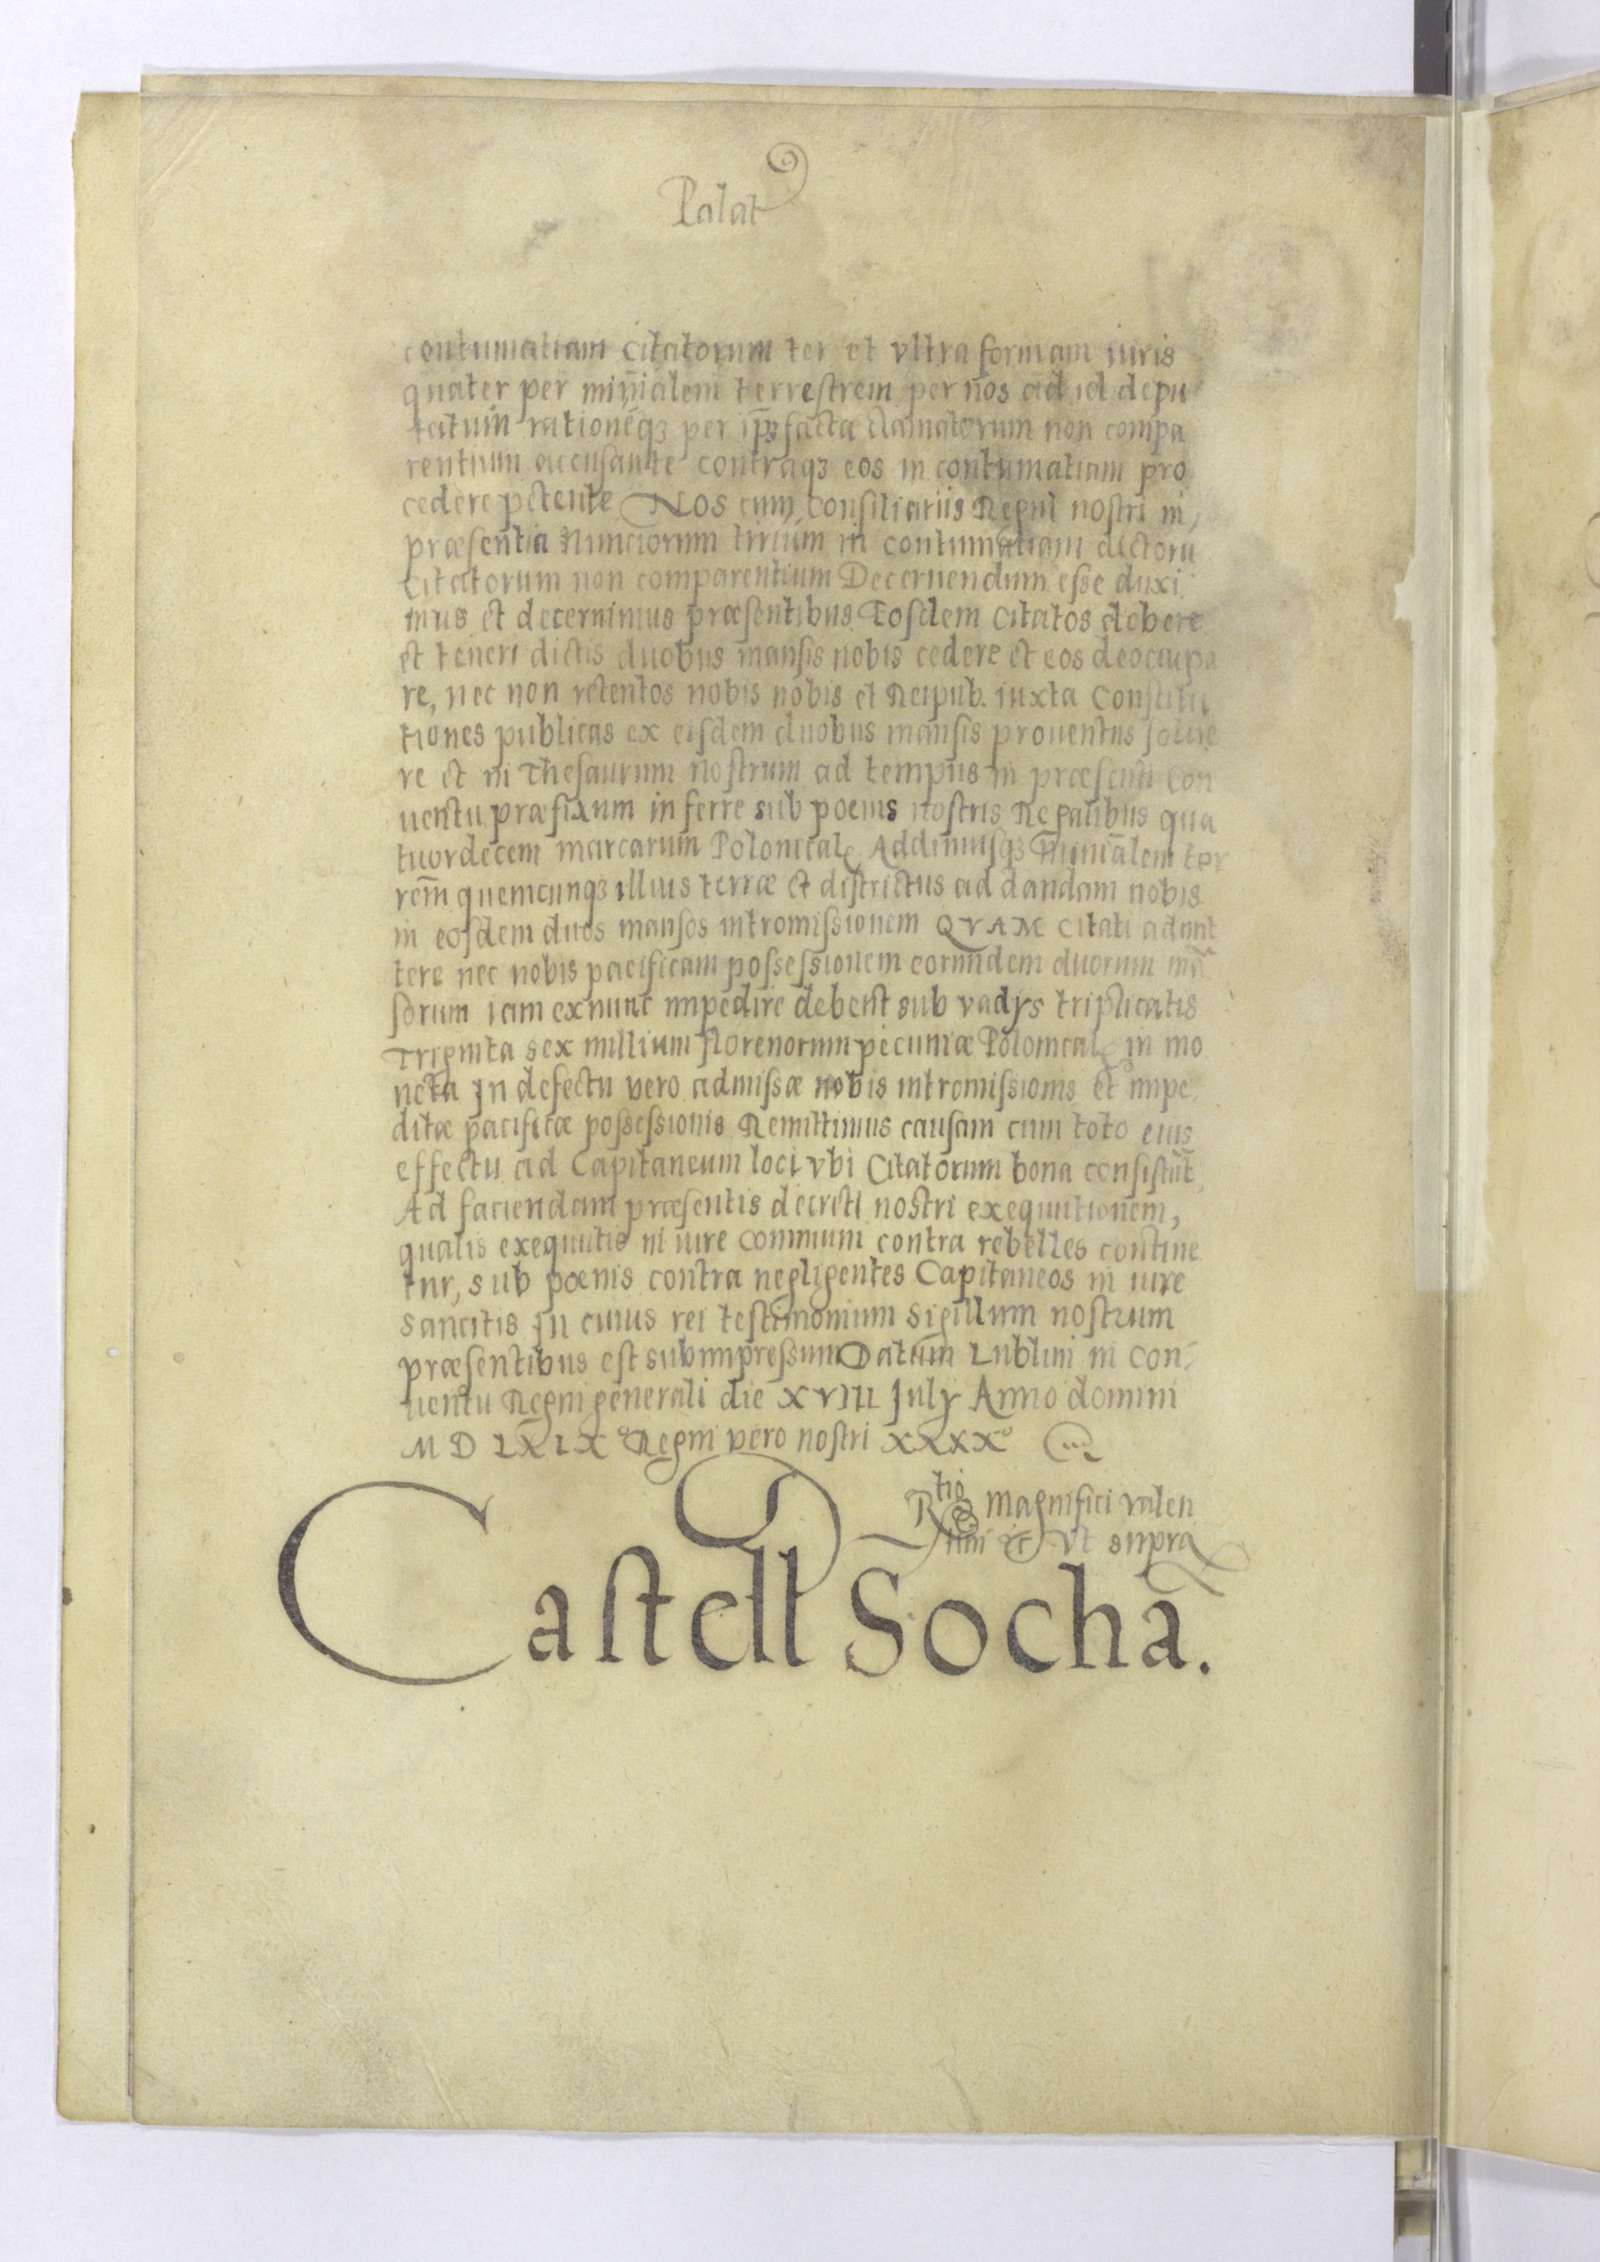 Palat
contumatiam Citatorum ter et vltra formam iuris
quater per min̄ialem terrestrem per nos ad id depu
tatum rationeq̃ꝫ per ip̄ꝫ facta clamatorum non compa
rentium accusante contraqꝫ eos in contumatiam pro
cedere petente Nos cum Consiliariis Regni nostri in
præsentia Nunciorum in contumatiam dictoru
Citatorum non comparentium Decernendum esse duxi
mus et decernimus præsentibus Eosdem Citatos debere
et teneri dictis duobus mansis nobis cedere et eos deoccupa
re, nec non retentos nobis nobis et Reipub. iuxta Constitu
tiones publicas ex eisdem duobus mansis prouentus solue
re et in Thesaurum nostrum ad tempus in præsenti Con
uentu præfixum inferre sub poenis nostris Regalibus qua
tuordecem marcarum Polonical Addimusqꝫ minīalem ter
rem̄ quemcunqꝫ illius terræ et districtus ad dandam nobis
in eosdem duos mansos intromissionem QVAM Citati admit
tere nec nobis pacificam possessionem eorundem duorum mā
sorum iam exnunc impedire debent sub vadys triplicatis
Triginta sex millium florenorum pecuniæ Polonical in mo
neta In defectu vero admissæ nobis intromissionis et impe
ditæ pacificæ possessionis Remittimus causam cum toto eius
effectu ad Capitaneum loci vbi Citatorum bona consistūt,
Ad faciendam præsentis decreti nostri exequutionem,
qualis exequutio in iure Communi contra rebelles contine
tur, sub poenis contra negligentes Capitaneos in iure
sancitis In cuius rei testimonium Sigillum nostrum
præsentibus est subimpressum Datum Lublini in Con
uentu Regni generali die XVIII July Anno domini
M D LXIX° Regni vero nostri XXXX°
Rtio Magnifici valen
tini &c Vt supra
Castell Socha.